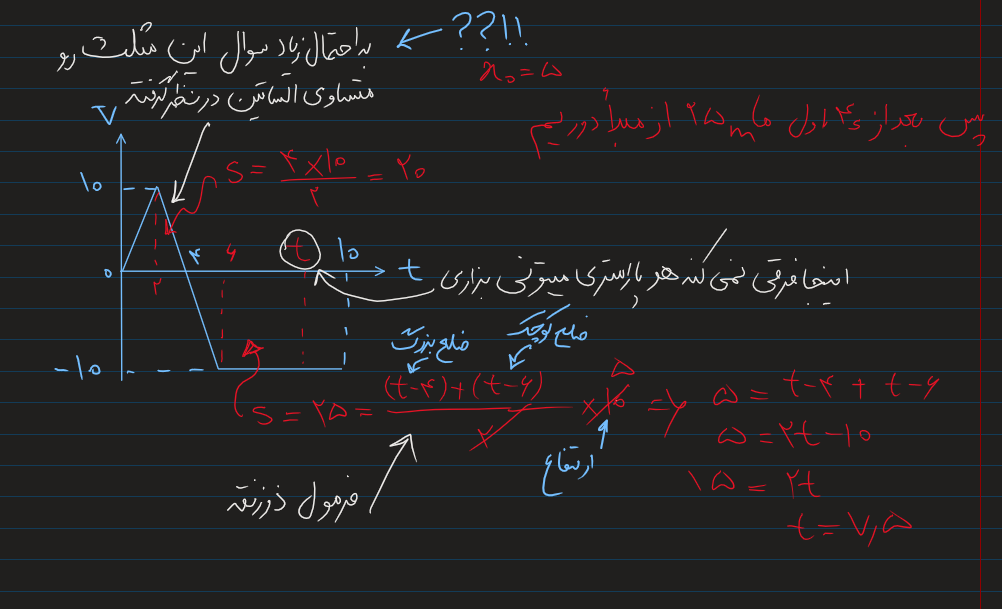 به احتمال زیاد سوال این مثلث رو ← ??!!
متساوی الساقین در نظر گرفته
x₀ = ۵
پس بعد از ۴s اول ما ۲۵m از مبدأ دوریم
V
S = ۴×۱۰/۲ = ۲۰
۱۰
۰ ۲ ۴ ۶ t ۱۰ t
-۱۰
اینجا فرقی نمی کنه هر پارامتری میتونی بزاری
ضلع بزرگ ضلع کوچک
S = ۲۵ = (t-۴)+(t-۶)/۲ ×۱۰ ۵ => ۵ = t-۴ + t-۶
ارتفاع
۵ = ۲t - ۱۰
۱۵ = ۲t
t = ۷,۵
فرمول ذوزنقه